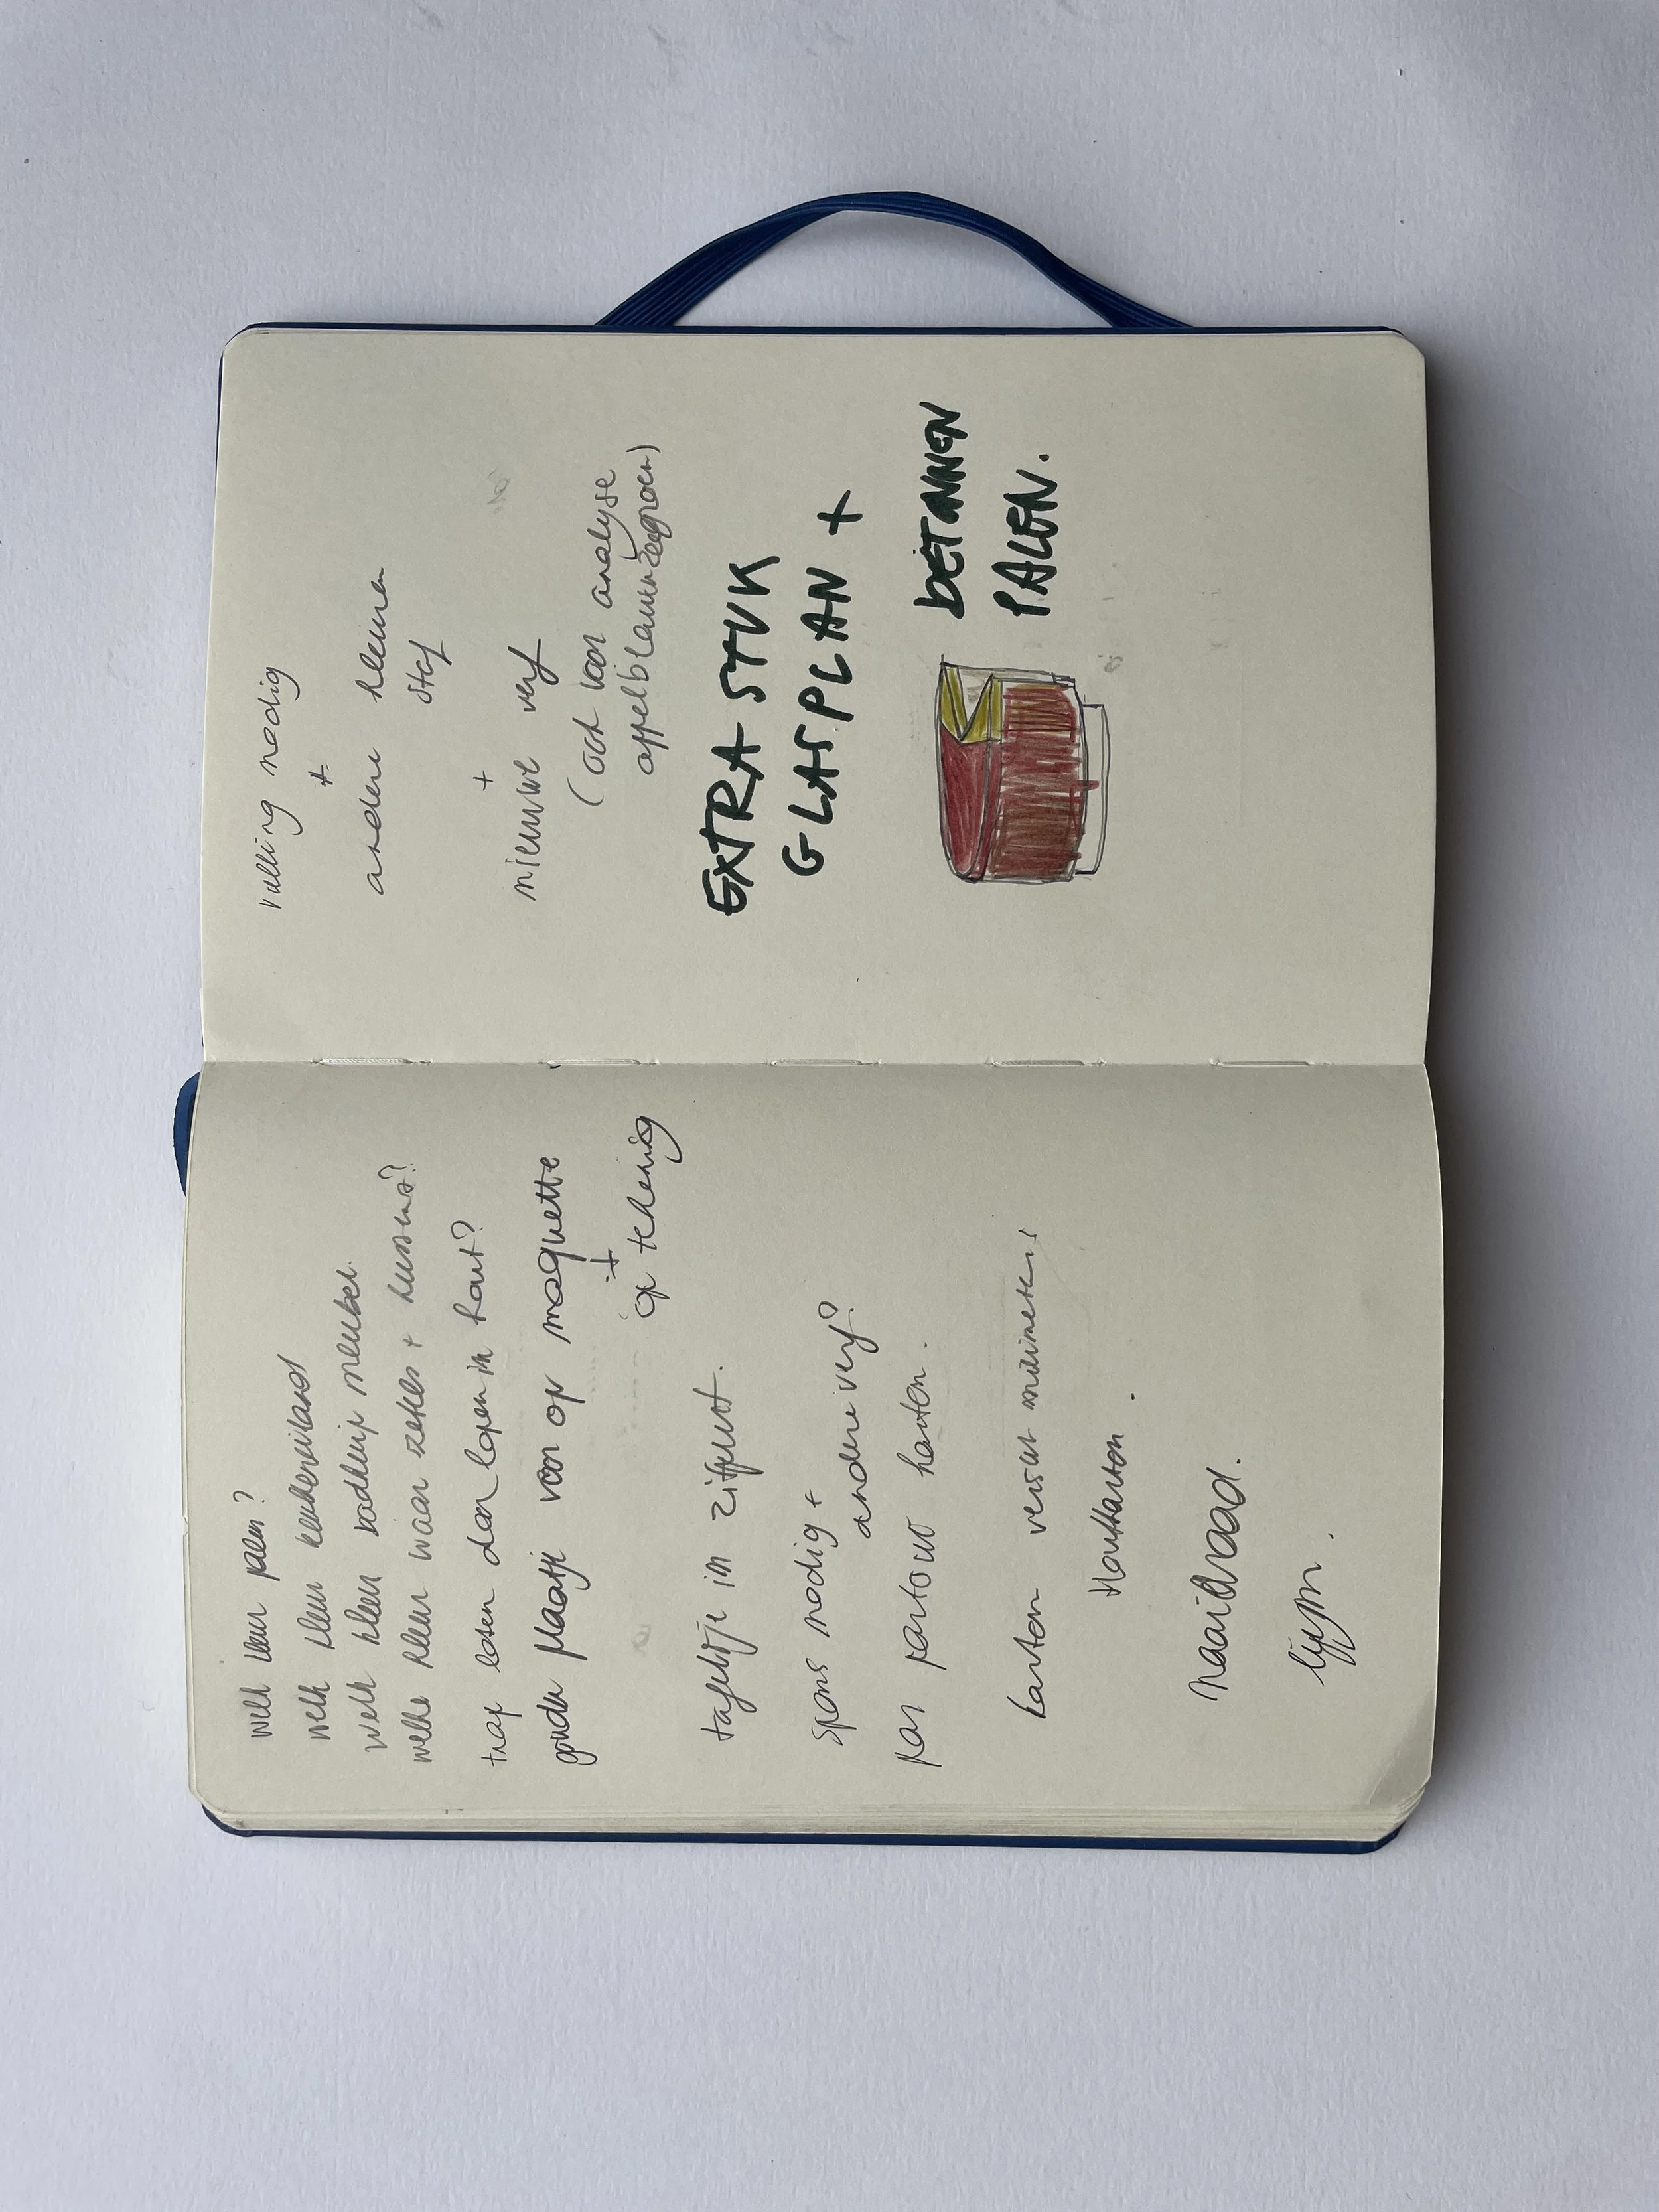 welk kleur palen?
welk kleur keukeneiland
welk kleur badkuip meubel.
welke kleur waar zetels + kussens?
trap laten doorlopen in hout?
gouden plaatje voor op maquette
+
op tekening
tafeltje in zitput.
spons nodig +
andere verf?
pas partout karton.
karton versch milimeters
Houtkarton.
naaidraad.
lijm.
vulling nodig
+
andere kleine
stof
+
nieuwe verf
(ook voor analyse
appelblauwzeegroen)
EXTRA STUK
GLASPLAN +
BETONNEN
PALEN.